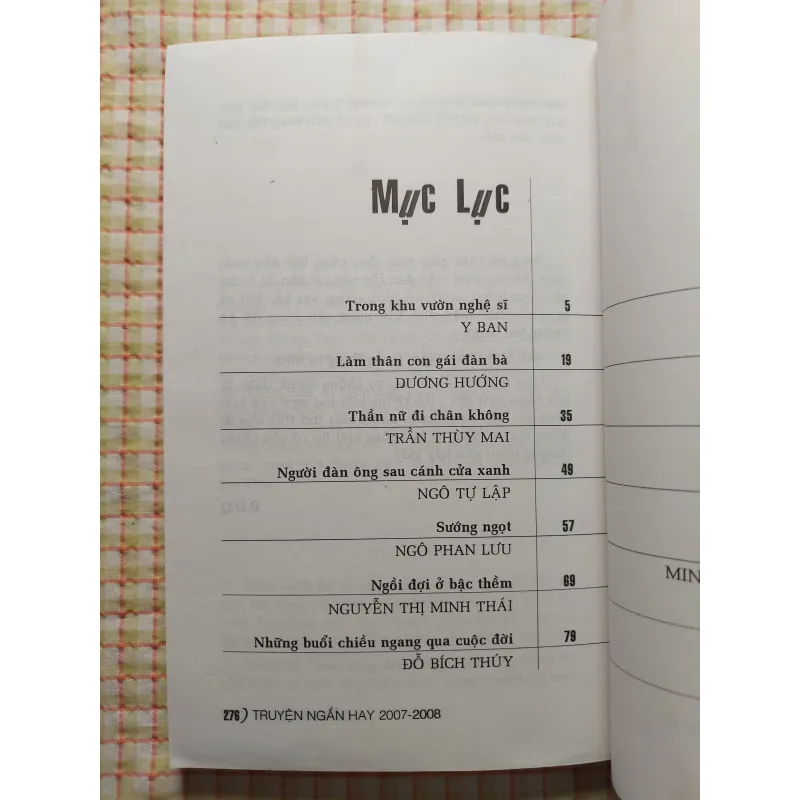 Mục Lục
Trong khu vườn nghệ sĩ 5
Y BAN
Làm thân con gái đàn bà 19
DƯƠNG HƯỚNG
Thần nữ đi chân không 35
TRẦN THÙY MAI
Người đàn ông sau cánh cửa xanh 49
NGÔ TỰ LẬP
Sướng ngọt 57
NGÔ PHAN LƯU
Ngồi đợi ở bậc thềm 69
NGUYỄN THỊ MINH THÁI
Những buổi chiều ngang qua cuộc đời 79
ĐỖ BÍCH THÚY
276) TRUYỆN NGẮN HAY 2007-2008
MIN